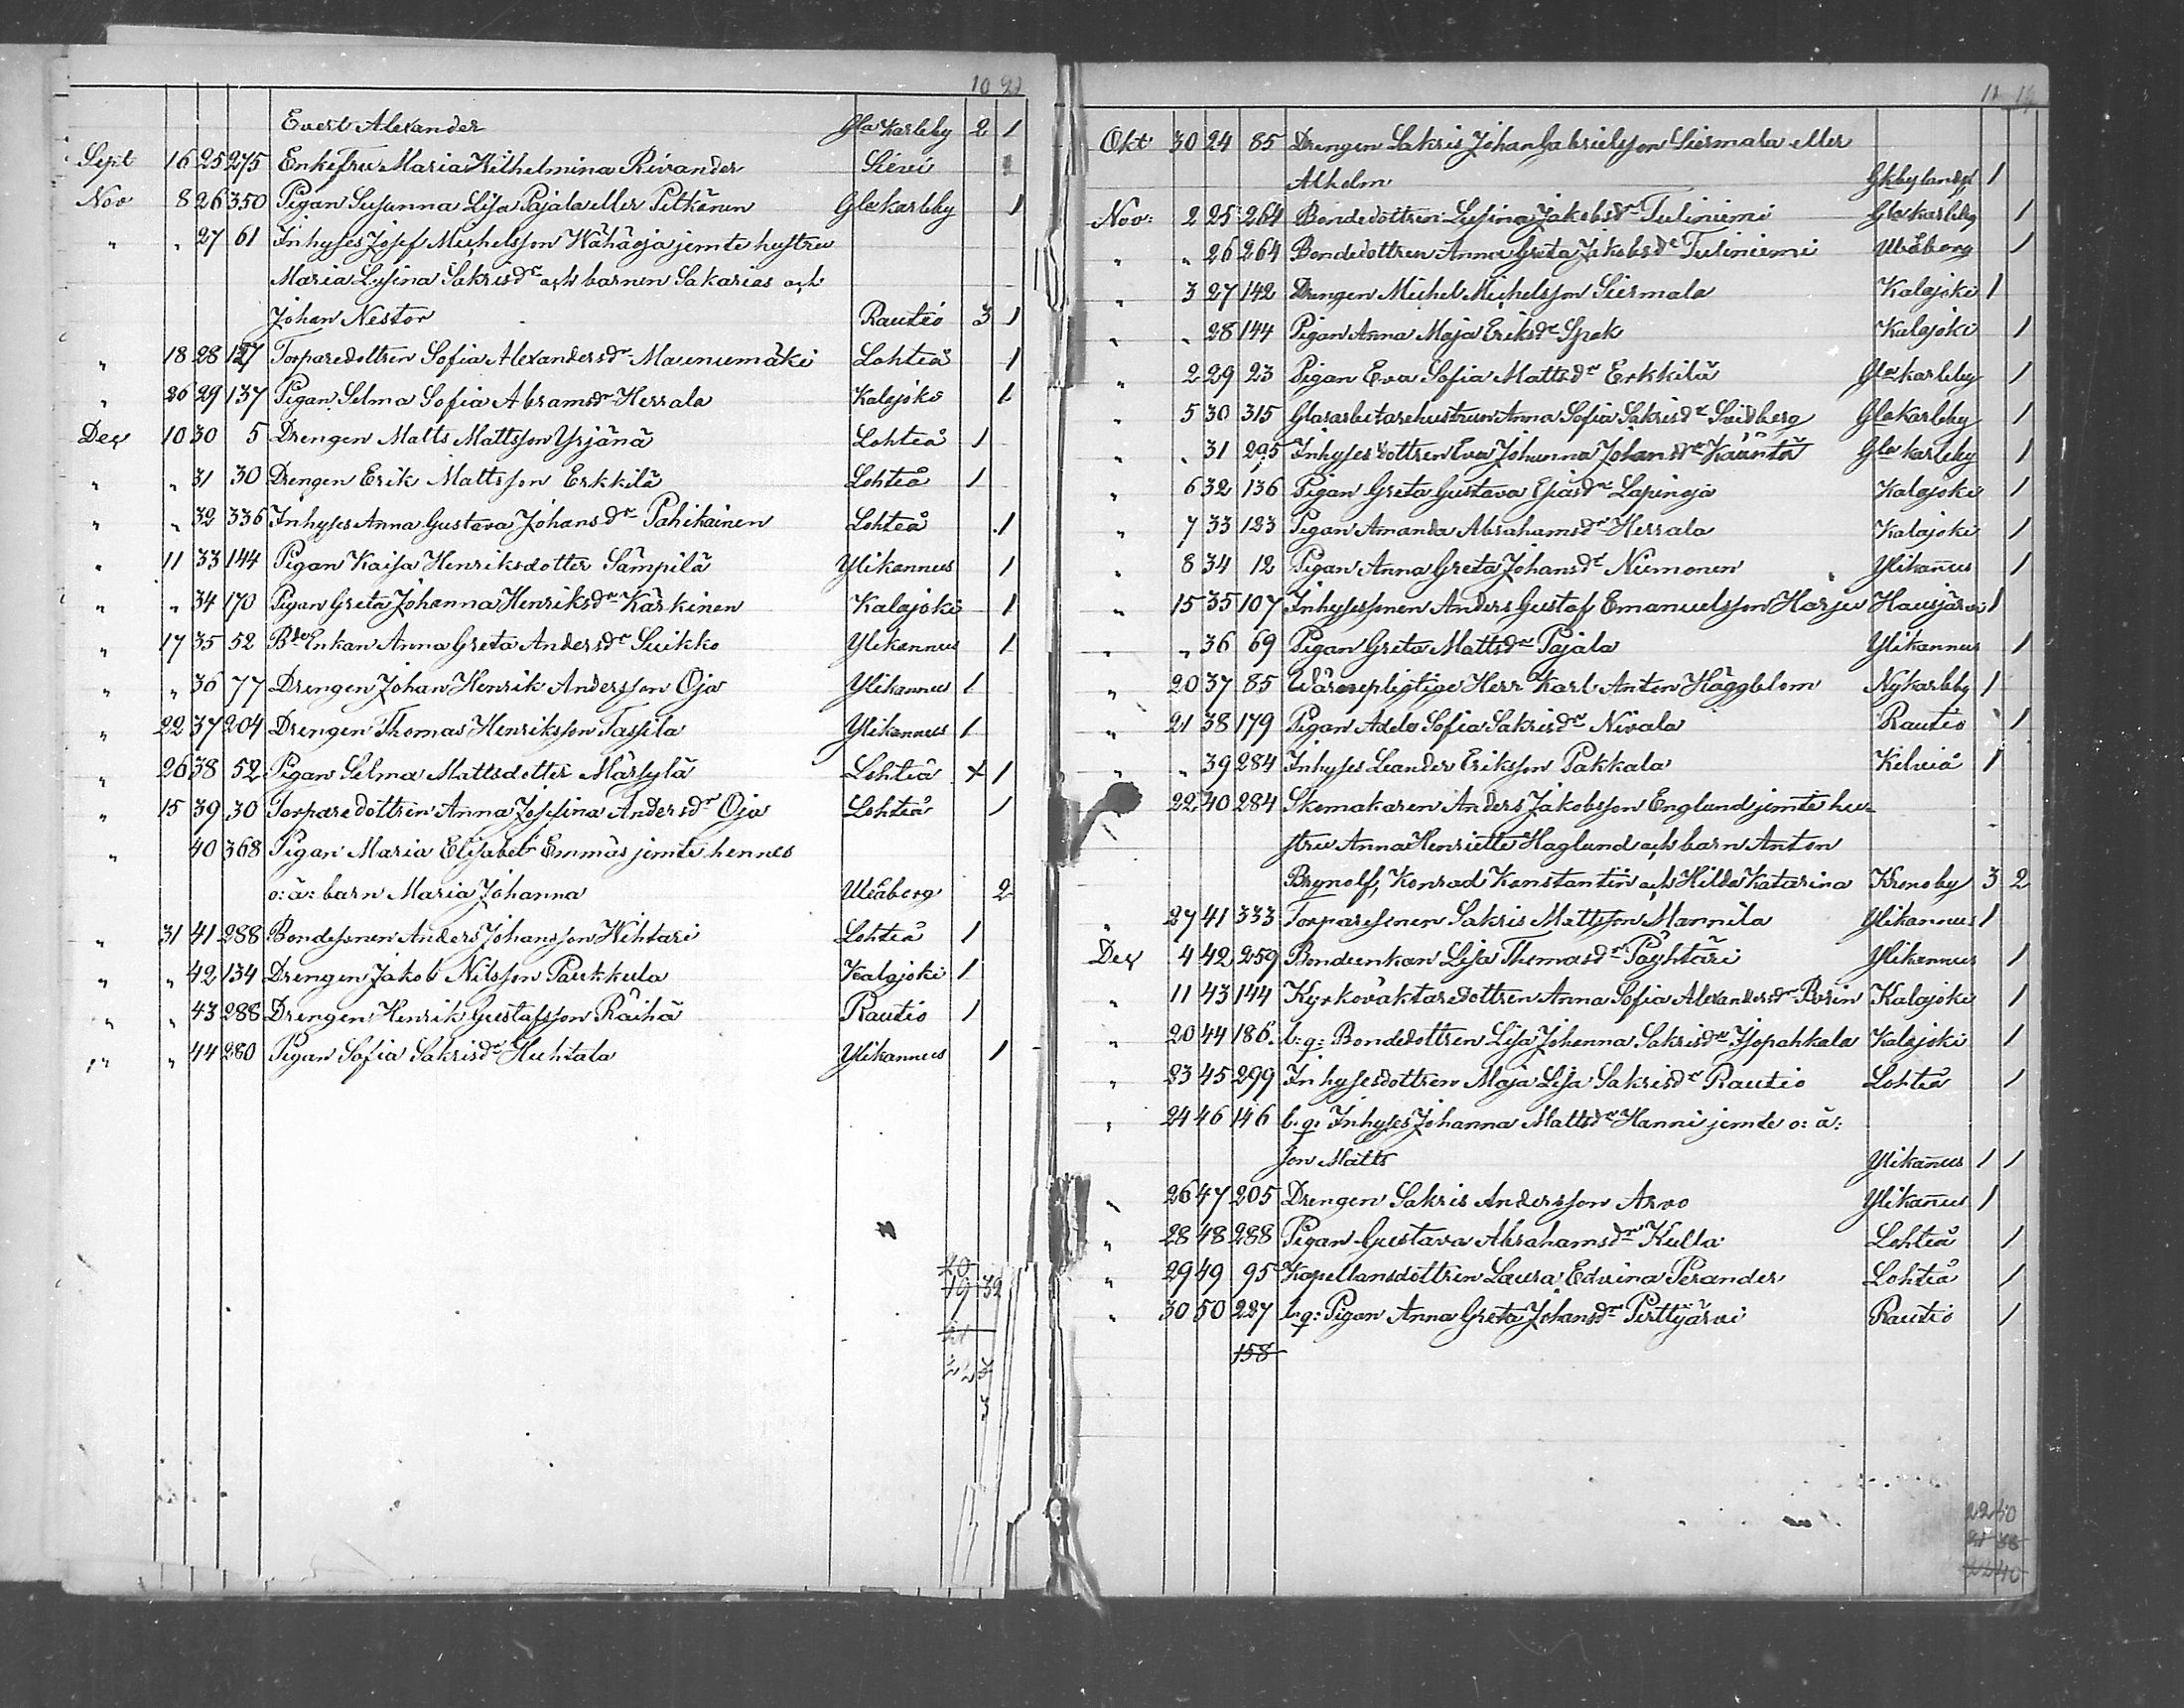 10 21
Evert Alexander Gla Karleby 2 1
Sept 16 25 275 Enkefru Maria Wilhelmina Rivander Sievi 1
Nov 8 26 350 Pigan Susanna Lisa Pajala eller Pitkänen Gla karleby 1
" " 27 61 Inhyses Josef Michelsson Wähäoja jemte hustru
Maria Lisina Sakrisdr och barnen Sakarias och
Johan Nestor Rautio 3 1
" 18 28 127 Torparedottren Sofia Alexandersdr Maunumäki Lohteå 1
" 26 29 137 Pigan Selma Sofia Abramsdr Herrala Kalajoki 1
Dec 10 30 5 Drengen Matts Mattsson Yrjänä Lohteå 1
" " 31 30 Drengen Erik Mattsson Erkkilä Lohteå 1
" " 32 336 Inhyses Anna Gustava Johansdr Pahikainen Lohteå 1
" 11 33 144 Pigan Kaisa Henriksdotter Sämpilä Ylikannus 1
" " 34 170 Pigan Greta Johanna Henriksdr Kärkinen Kalajoki 1
" 17 35 52 Bde Enkan Anna Greta Andersdr Suikko Ylikannus 1
" " 36 77 Drengen Johan Henrik Andersson Oja Ylikannus 1
" 22 37 204 Drengen Thomas Henriksson Tassila Ylikannus 1
" 26 38 52 Pigan Selma Mattsdotter Märsylä Lohteå + 1
" 15 39 30 Torparedottren Anna Josefina Andersdr Oja Lohteå 1
" 40 368 Pigan Maria Elisabet Emmäs jemte hennes
o: ä: barn Maria Johanna Uleåborg 2
" 31 41 288 Bondesonen Anders Johansson Wihtari Lohteå 1
" " 42 134 Drengen Jakob Nilsson Paukkula Kalajoki 1
" " 43 288 Drengen Henrik Gustafsson Räihä Rautio 1
" " 44 280 Pigan Sofia Sakrisdr Huhtala Ylikannus 1
20
19 32
21
3
Okt 30 24 85 Drengen Sakris Johan Gabrielsson Siermala eller
Alholm Gkby landsf 1
Nov: 2 25 264 Bondedottren Lisina Jakobsdr Tuliniemi Gla karleby 1
" " 26 264 Bondedottren Anna Greta Jakobsdr Tuliniemi Uleåborg 1
" 3 27 142 Drengen Michel Michelsson Siermala Kalajoki 1
" " 28 144 Pigan Anna Maja Eriksdr Spek Kalajoki 1
" 2 29 23 Pigan Eva Sofia Mattsdr Erkkilä Gla karleby 1
" 5 30 315 Glasarbetarehustrun Anna Sofia Sakrisdr Saidberg Gla Karleby 1
" " 31 295 Inhysesdottren Eva Johanna Johansdr Käänta Gla karleby 1
" 6 32 136 Pigan Greta Gustava Esiasdr Lapinoja Kalajoki 1
" 7 33 123 Pigan Amanda Abrahamsdr Herrala Kalajoki 1
" 8 34 12 Pigan Anna Greta Johansdr Niemonen Ylikanus 1
" 15 35 107 Inhysessonen Anders Gustaf Emanuelsson Harju Hausjärvi 1
" " 36 69 Pigan Greta Mattsdr Pajala Ylikannus 1
" 20 37 85 Wärnepligtige Herr Karl Anton Häggblom Nykarleby 1
" 21 38 179 Pigan Adela Sofia Sakrisdr Nivala Rautio 1
" " 39 284 Inhyses Leander Eriksson Pakkala Kelviå 1
22 40 284 Skomakaren Anders Jakobsson Englund jemte hu-
stru Anna Henriette Haglund och barn Anton
Brynolf, Konrad Konstantin och Hilda Katarina Kronoby 3 2
" 27 41 333 Torparesonen Sakris Mattsson Mannila Ylikannus 1
Dec 4 42 259 Bondeenkan Lisa Thomasdr Päyhtäri Ylikannus 1
" 11 43 144 Kyrkoväktaredottren Anna Sofia Alexandersdr Porin Kalajoki 1
" 20 44 186 b: q: Bondedottren Lisa Johanna Sakrisdr Isopahkala Kalajoki 1
" 23 45 299 Inhysesdottren Maja Lisa Sakrisdr Rautio Lohteå 1
" 24 46 146 b: q: Inhyses Johanna Mattsdr Hanni jemte o: ä:
son Matts Ylikanus 1 1
" 26 47 205 Drengen Sakris Andersson Arvo Ylikanus 1
" 28 48 288 Pigan Gustava Abrahamsdr Kulla Lohteå 1
" 29 49 95 Kapellansdottren Laura Edvina Perander Lohteå 1
" 30 50 227 b: q: Pigan Anna Greta Johansdr Pirttijärvi Rautio 1
158
22 40